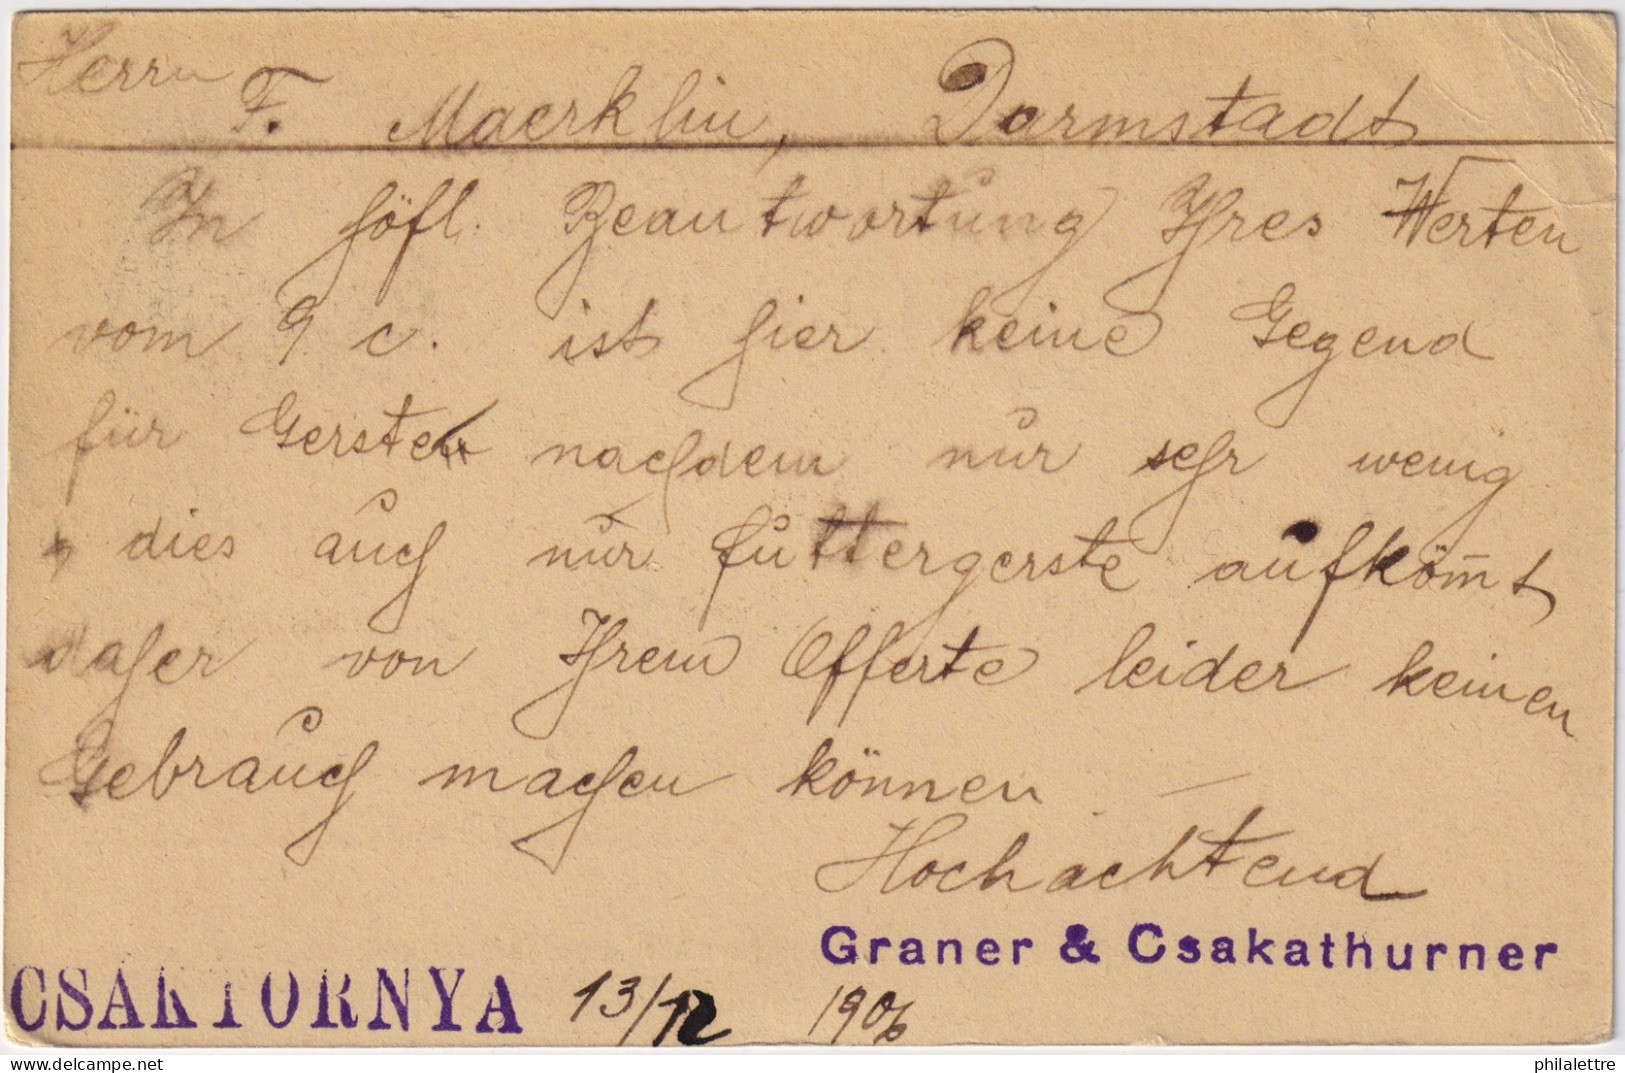 Herrn
F. Maerklin, Darmstadt
In höfl. Beantwortung Ihres Werten
vom 9 c. ist hier keine Gegend
für Gersten nachdem nur sehr wenig
dies auch nur Futtergerste aufkom̅t
daher von Ihrem Offerte leider keinen
Gebrauch machen können
Hochachtend
Graner & Csakathurner
CSAKTORNYA 13/12 1906
philalettre